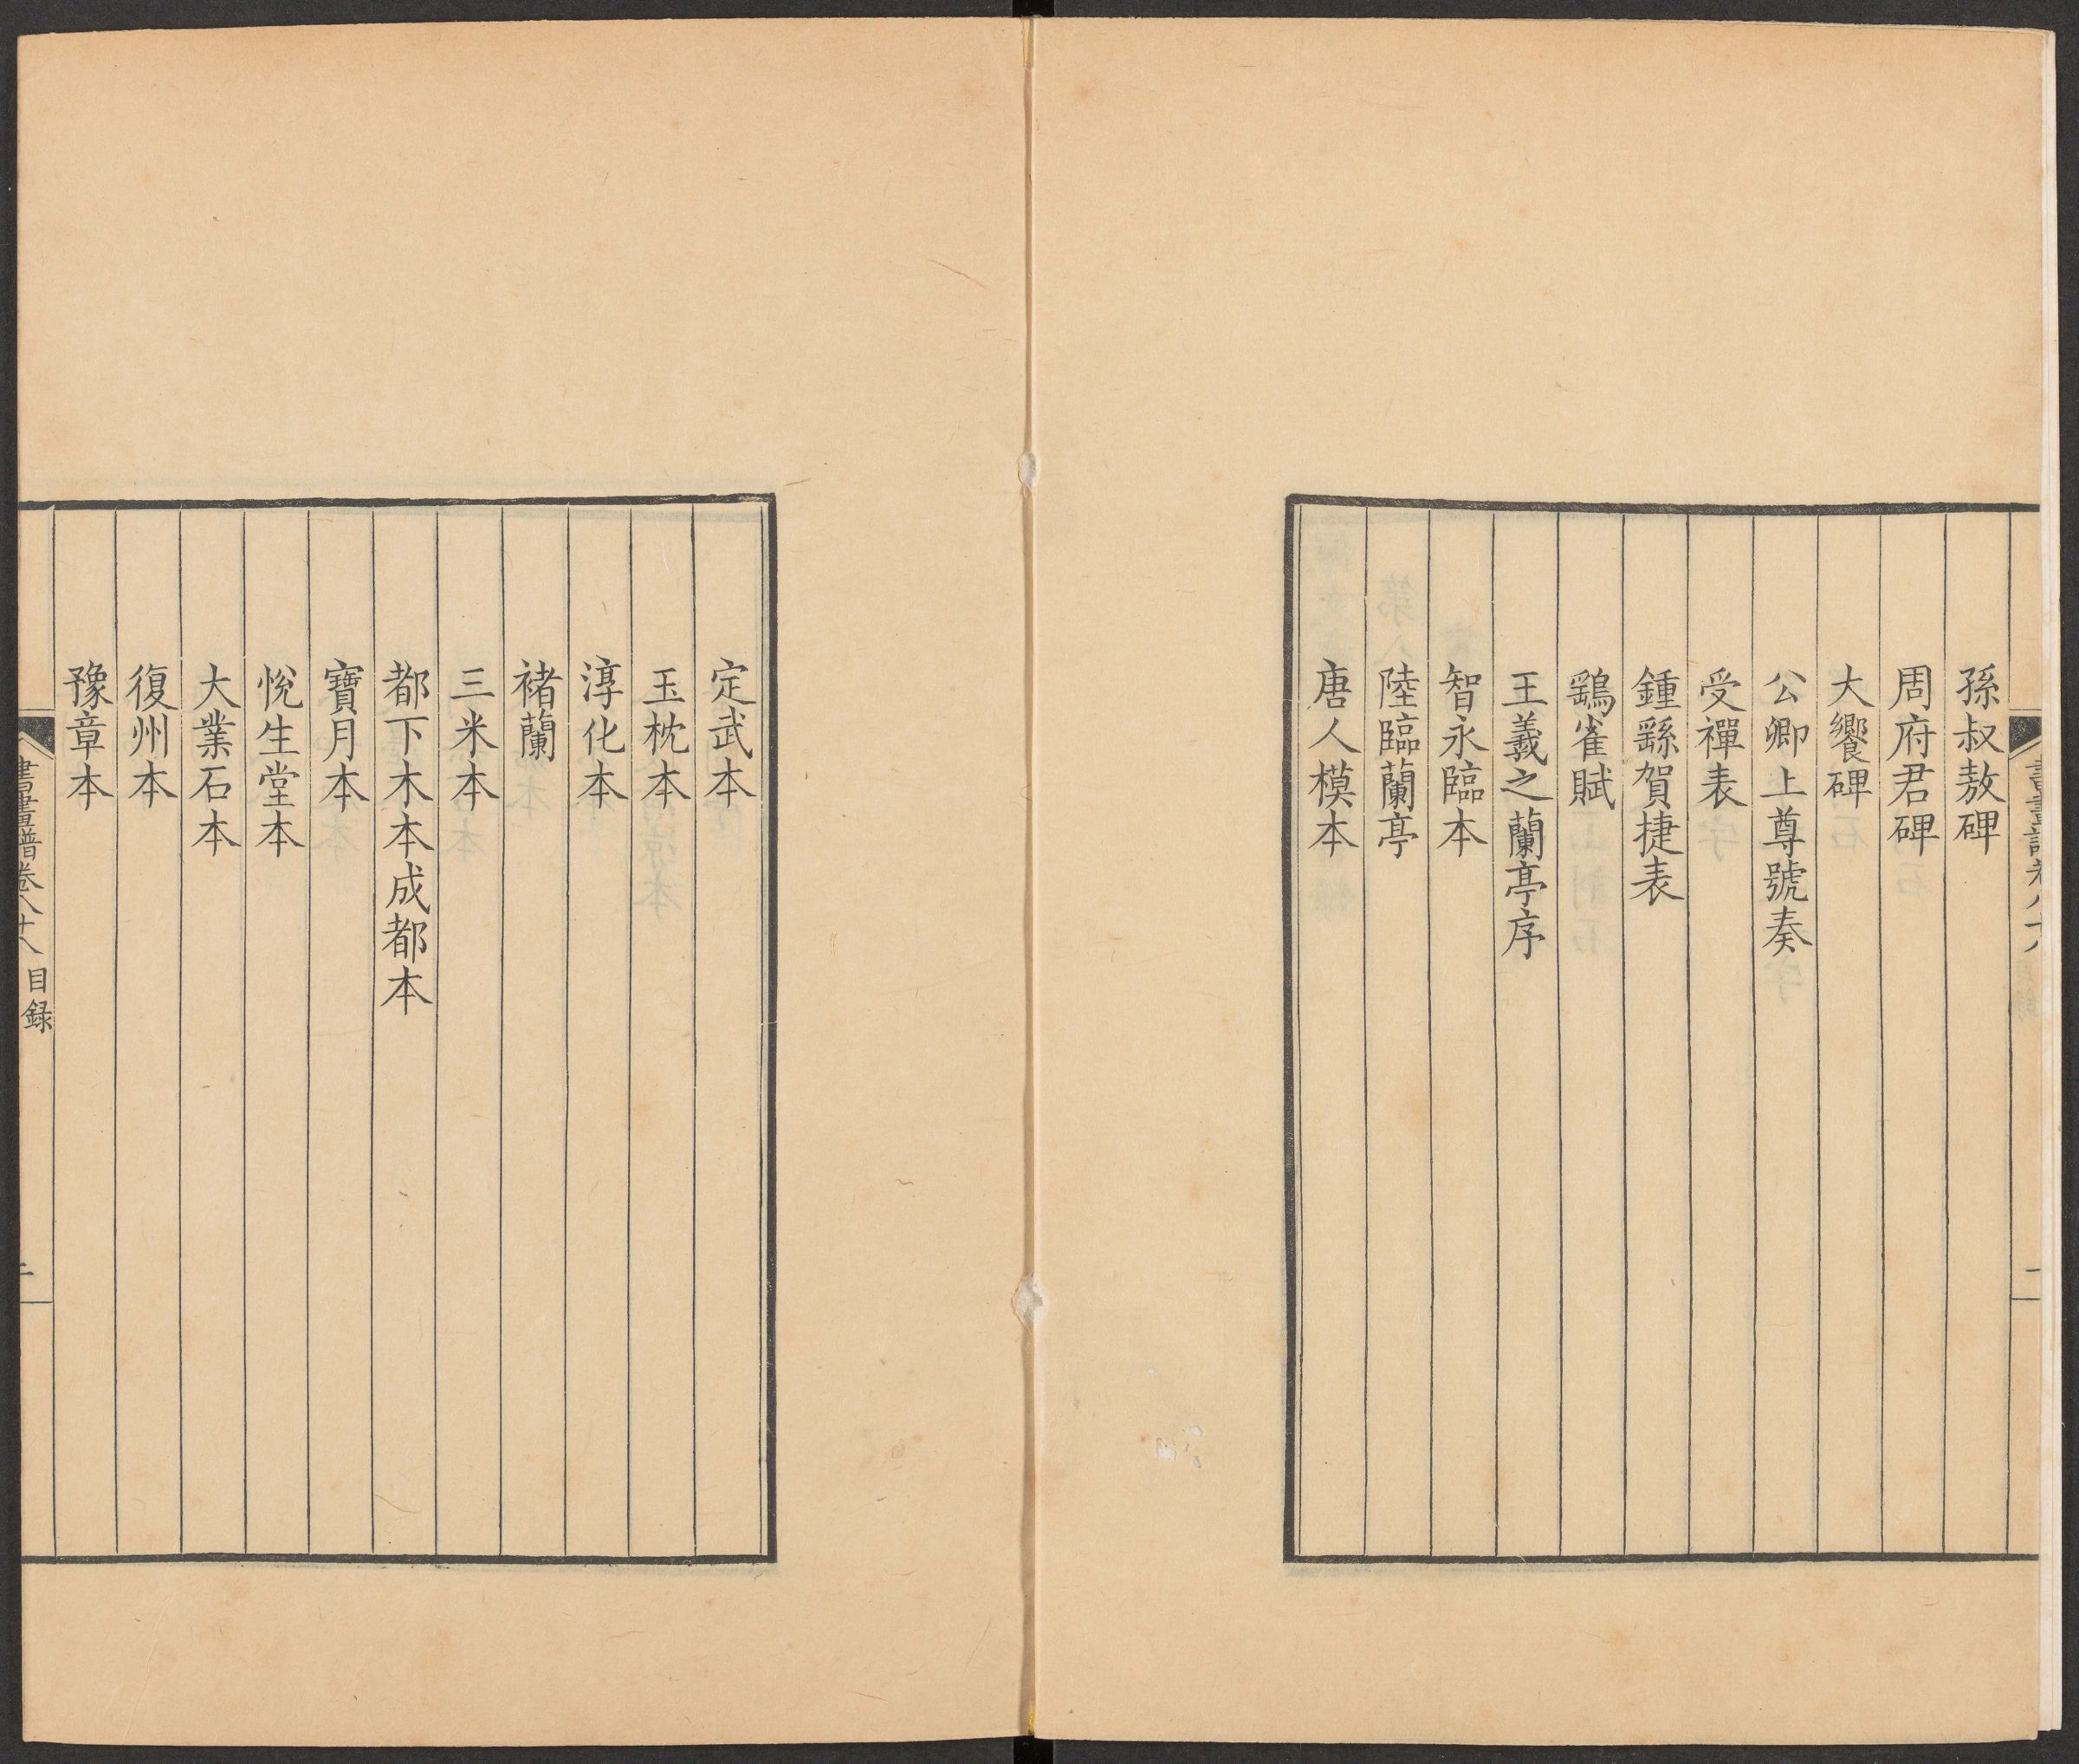 孫叔敖碑
周府君碑
大饗碑
公卿上尊號奏
受禪表
鍾繇賀捷表
鷂雀賦
王羲之蘭亭序
智永臨本
陸臨蘭亭
唐人模本
定武本
玉枕本
淳化本
褚蘭
三米本
都下木本成都本
寶月本
悅生堂本
大業石本
復州本
豫章本
書畫譜卷八十八 目録
二